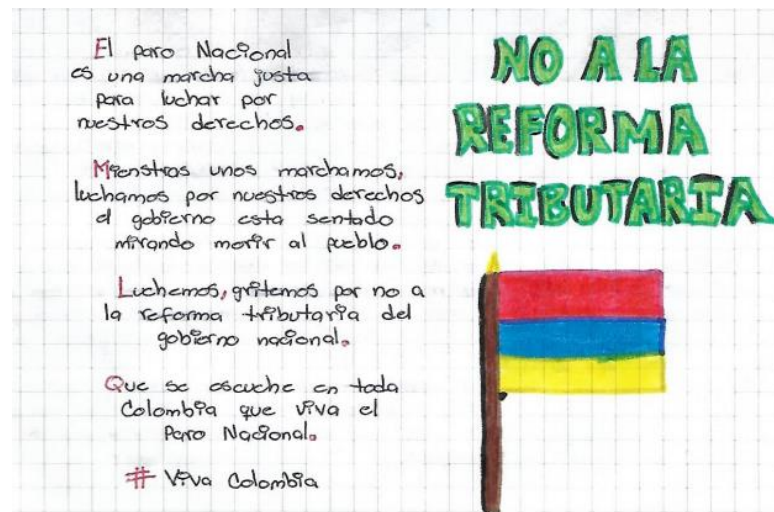 El paro Nacional
es una marcha justa
para luchar por
nuestros derechos.
Mienstras unos marchamos,
luchamos por nuestros derechos
el gobierno esta sentado
mirando morir al pueblo.
Luchemos, gritemos por no a
la reforma tributaria del
gobierno nacional.
Que se escuche en toda
Colombia que viva el
Paro Nacional.
# Viva Colombia
NO A LA
REFORMA
TRIBUTARIA